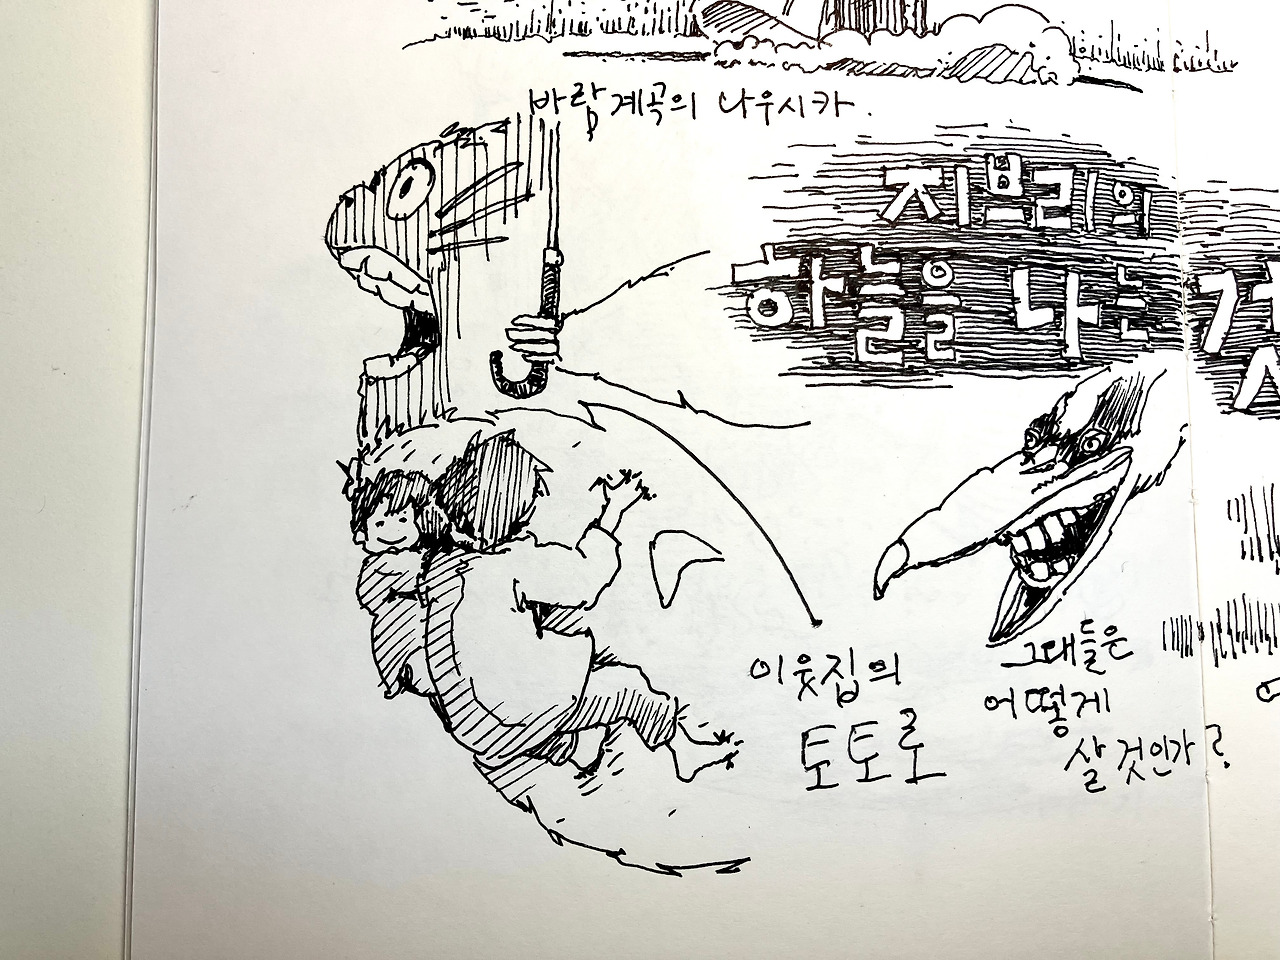 바람계곡의 나우시카.
지브리의
하늘을 나는
이웃집의
토토로
그대들은
어떻게
살 것인가?